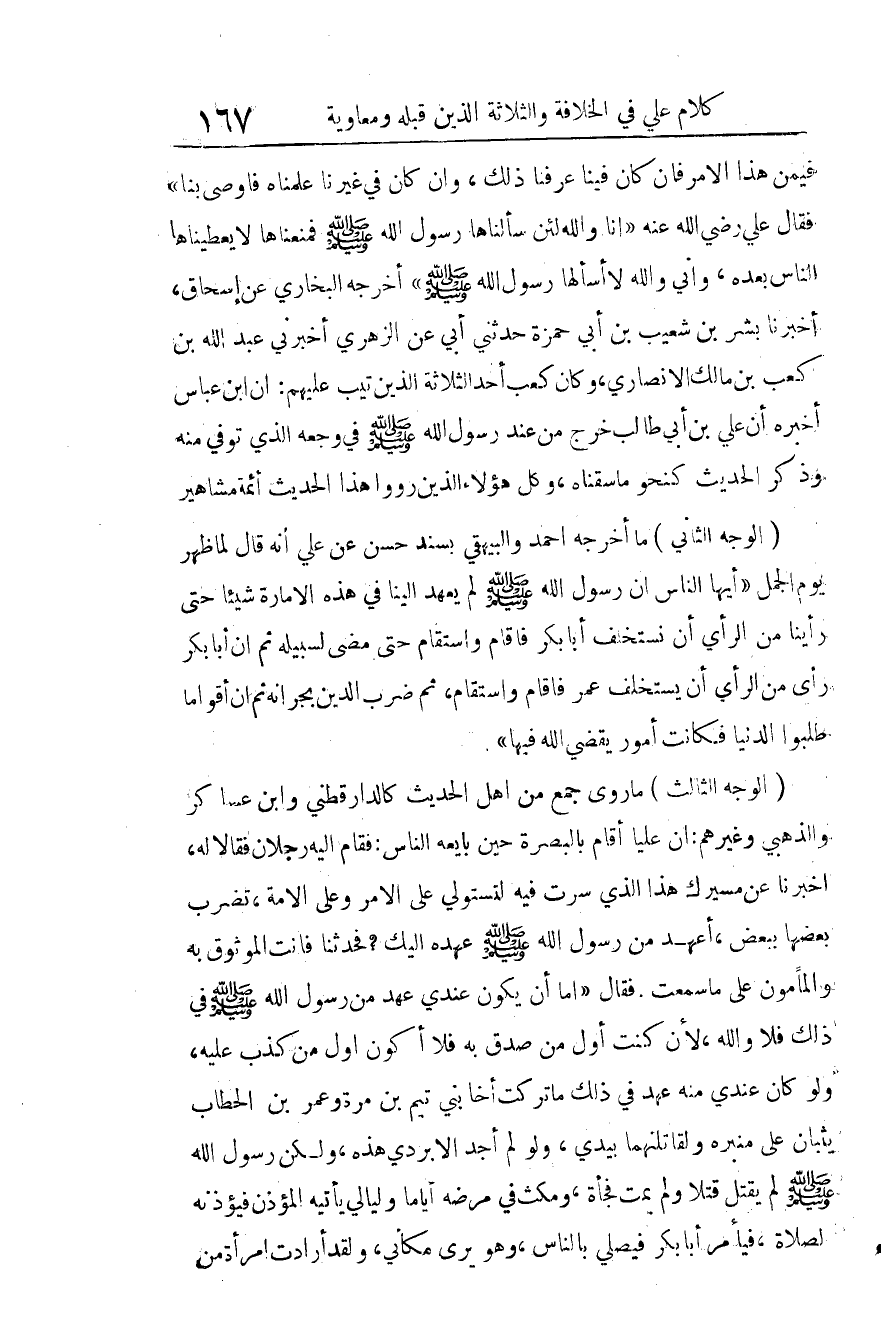 كلام علي في الخلافة والثلاثة الذين قبله ومعاوية ١٦٧
فيمن هذا الامر فان كان فينا عرفنا ذلك ، وان كان في غيرنا علمناه فاوصى بنا»
فقال علي رضي الله عنه «انا والله لئن سألناها رسول الله ﷺ فمنعناها لا يعطيناها
الناس بعده ، واني والله لا أسألها رسول الله ﷺ» أخرجه البخاري عن إسحاق ،
أخبرنا بشر بن شعيب بن أبي حمزة حدثني أبي عن الزهري أخبرني عبد الله بن
كعب بن مالك الانصاري ، وكان كعب أحد الثلاثة الذين تيب عليهم : ان ابن عباس
أخبره أن علي بن أبي طالب خرج من عند رسول الله ﷺ في وجعه الذي توفي منه
وذكر الحديث كنحو ماسقناه ، وكل هؤلاء الذين رووا هذا الحديث أئمة مشاهير
( الوجه الثاني ) ما أخرجه احمد والبيهقي بسند حسن عن علي أنه قال لما ظهر
يوم الجمل «أيها الناس ان رسول الله ﷺ لم يعهد الينا في هذه الامارة شيئا حتى
رأينا من الرأي أن نستخلف أبا بكر فاقام واستقام حتى مضى لسبيله ثم ان أبا بكر
رأى من الرأي أن يستخلف عمر فاقام واستقام ، ثم ضرب الدين بجرانه ثم ان أقواما
طلبوا الدنيا فكانت أمور يقضي الله فيها» .
( الوجه الثالث ) ماروى جمع من اهل الحديث كالدارقطني وابن عساكر
والذهبي وغيرهم : ان عليا أقام بالبصرة حين بايعه الناس : فقام اليه رجلان فقالا له ،
اخبرنا عن مسيرك هذا الذي سرت فيه لتستولي على الامر وعلى الامة ، تضرب
بعضها ببعض ، أعهـد من رسول الله ﷺ عهده اليك ? فحدثنا فانت الموثوق به
والمأمون على ماسمعت . فقال «اما أن يكون عندي عهد من رسول الله ﷺ في
ذلك فلا والله ، لأن كنت أول من صدق به فلا أكون اول من كذب عليه ،
ولو كان عندي منه عهد في ذلك ماتركت أخا بني تيم بن مرة وعمر بن الخطاب
يثبان على منبره ولقاتلتهما بيدي ، ولو لم أجد الا بردي هذه ، ولـكن رسول الله
ﷺ لم يقتل قتلا ولم يمت فجأة ، ومكث في مرضه آياما وليالي يأتيه المؤذن فيؤذنه
لصلاة ، فيأمر أبا بكر فيصلي بالناس ، وهو يرى مكاني ، ولقد أرادت امرأة من